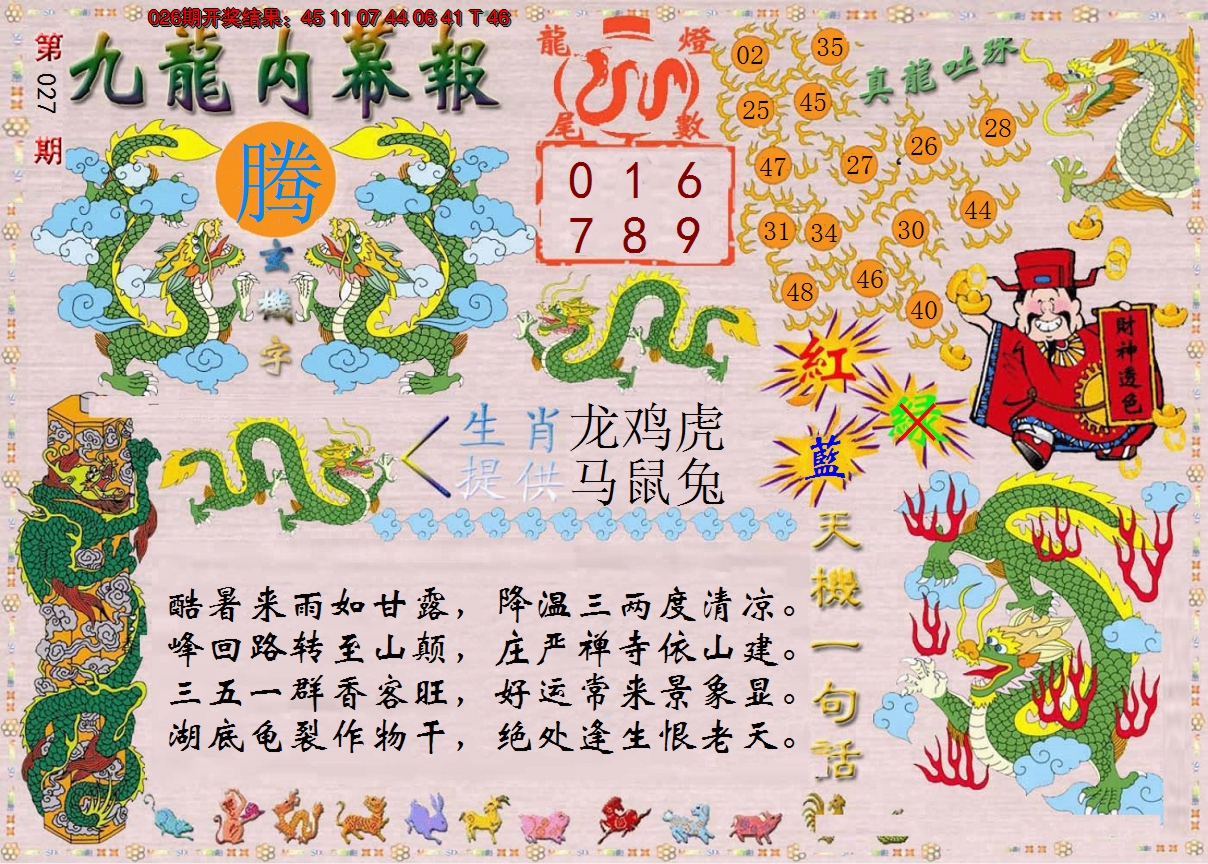 026期开奖结果：45 11 07 44 06 41 T 46
第027期
九龍内幕報
腾
玄機字
龍燈尾數
0 1 6
7 8 9
真龍吐珠
02
35
25
45
47
27
26
28
31
34
30
44
48
46
40
財神透色
紅
绿
藍
生肖提供
龙鸡虎
马鼠兔
天機一句話
酷暑来雨如甘露，降温三两度清凉。
峰回路转至山颠，庄严禅寺依山建。
三五一群香客旺，好运常来景象显。
湖底龟裂作物干，绝处逢生恨老天。